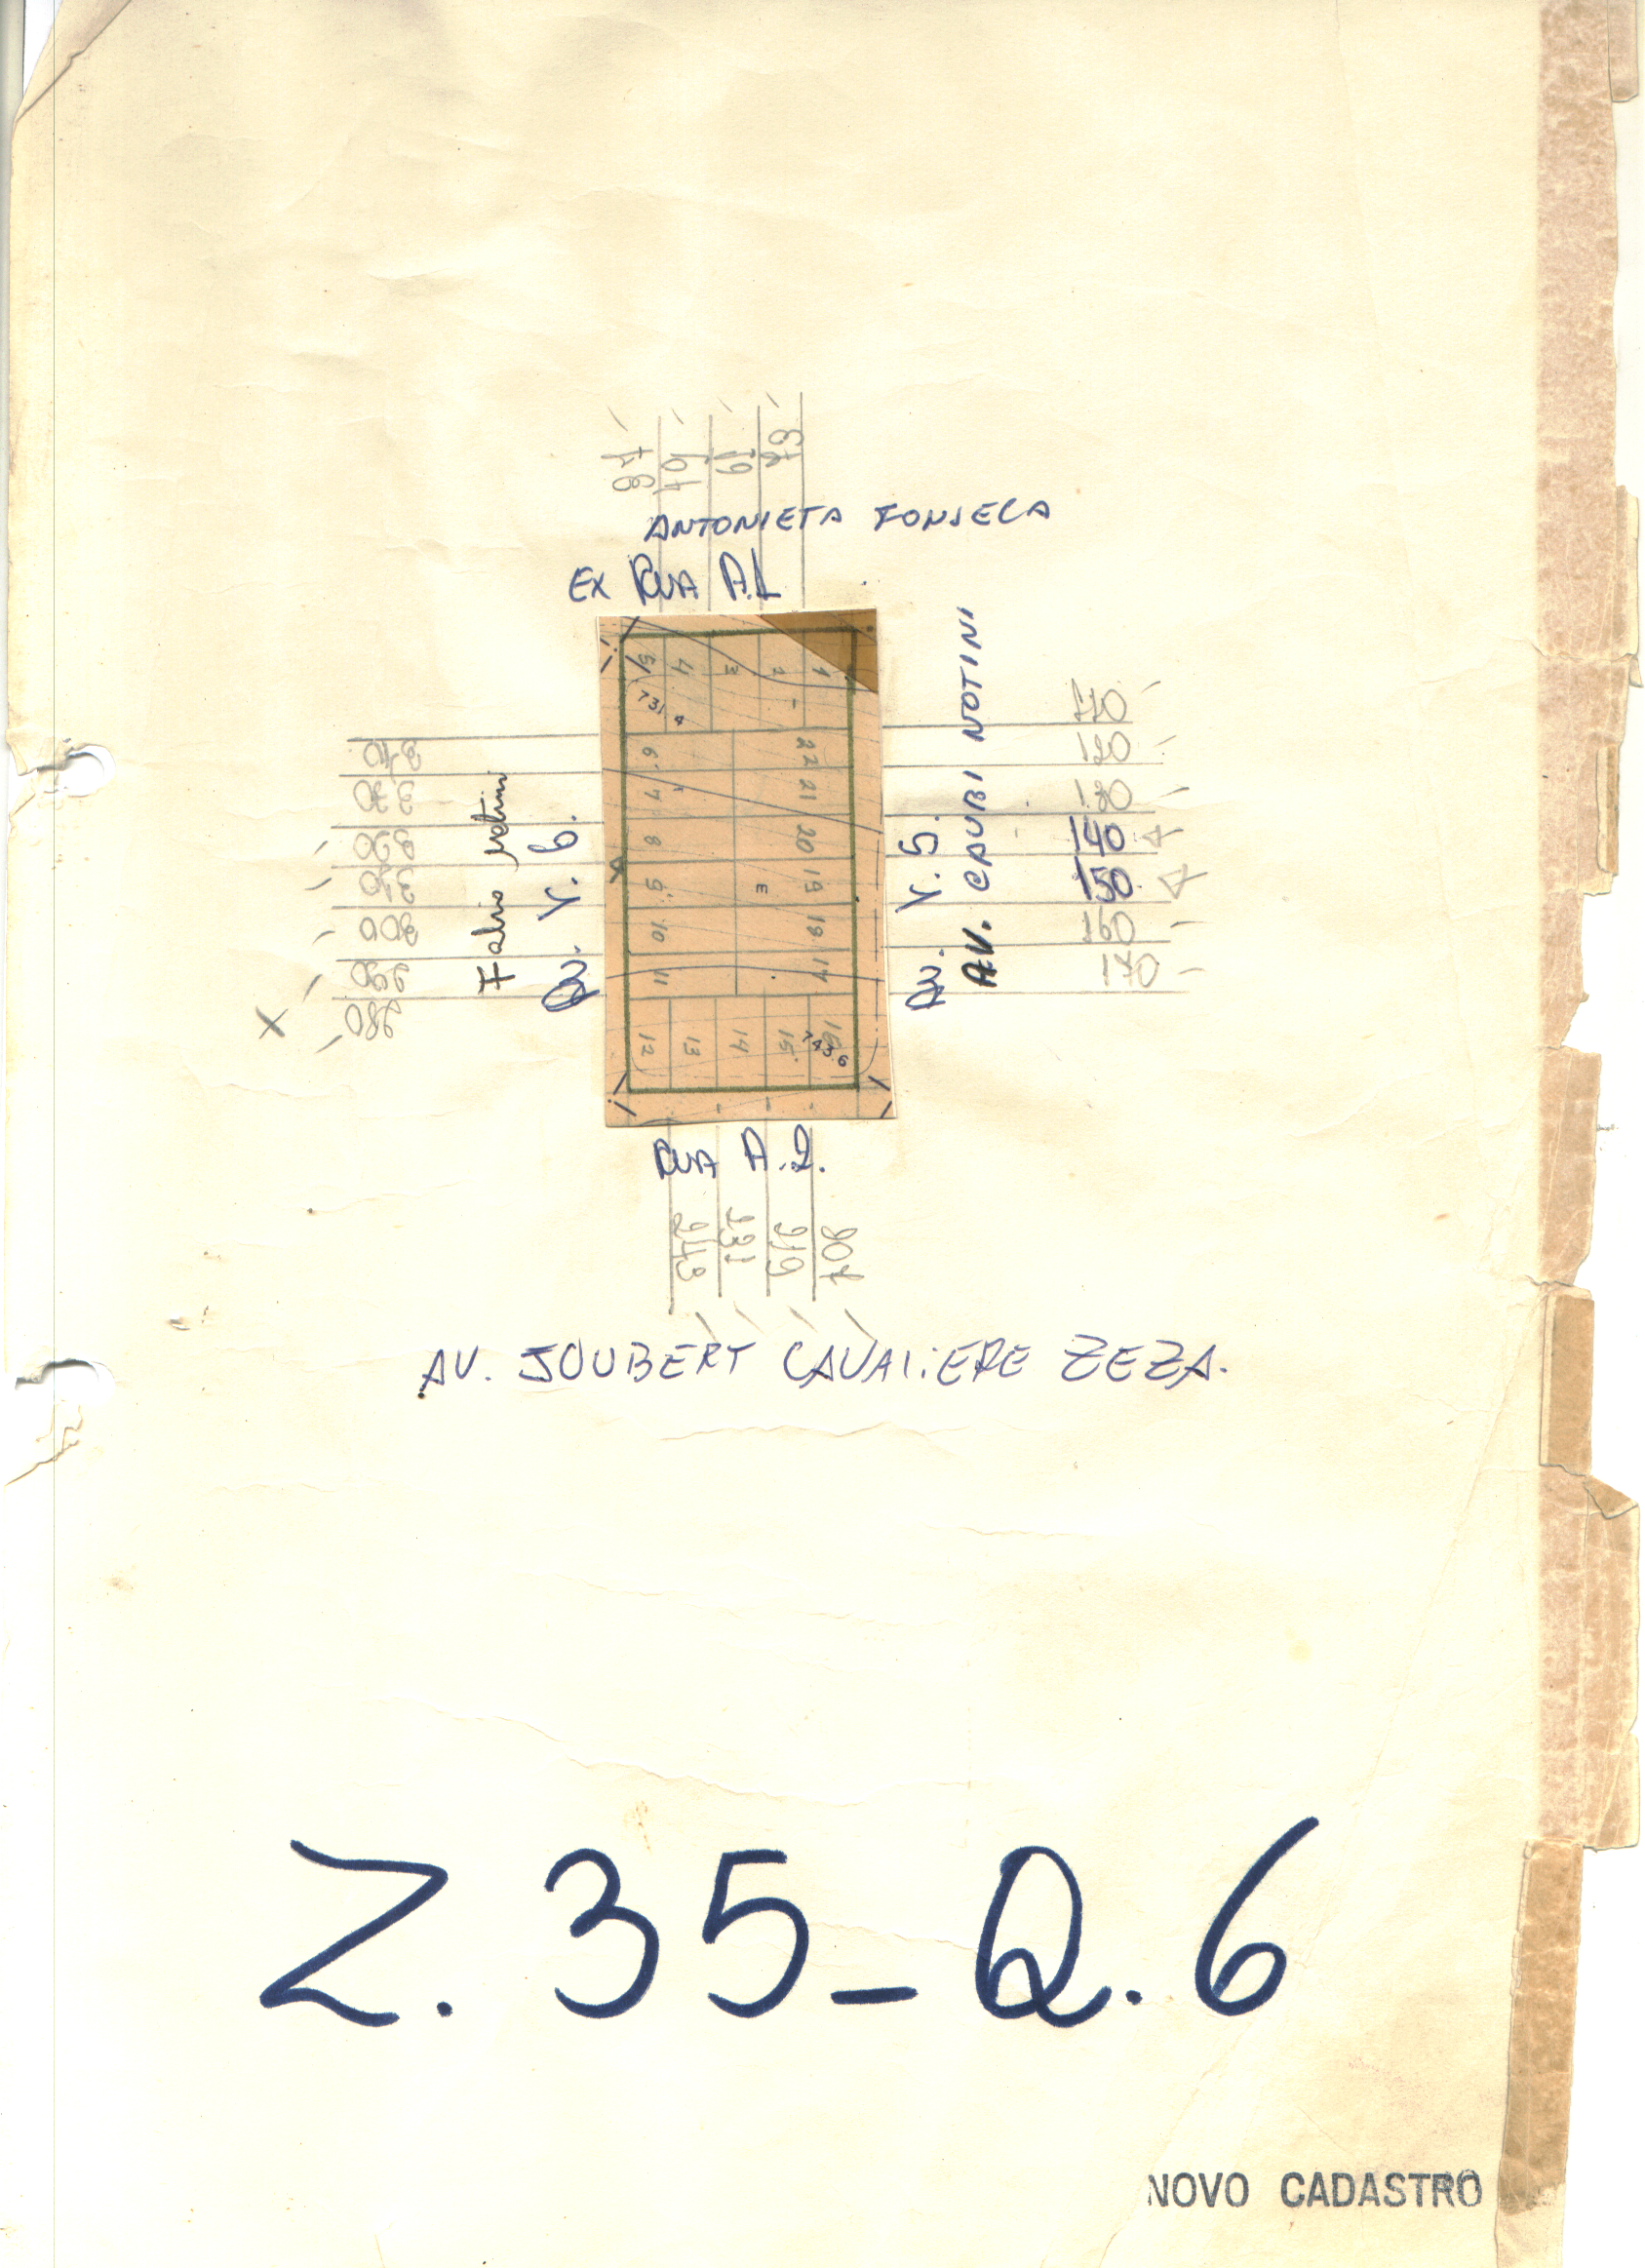 ANTONIETA FONSECA
EX RUA A.L
1
2
3
4
5
731.4
22
21
20
19
18
17
6
7
8
9
10
11
E
12
13
14
15
16
743.6
Av. V. 6.
Av. V. 5.
AV. CAUBI NOTINI
110
120
130
140
150
160
170
300
290
280
RUA A.2.
243
231
219
207
AV. JOUBERT CAVALIERE ZEZA.
Z. 35 - Q. 6
NOVO CADASTRO